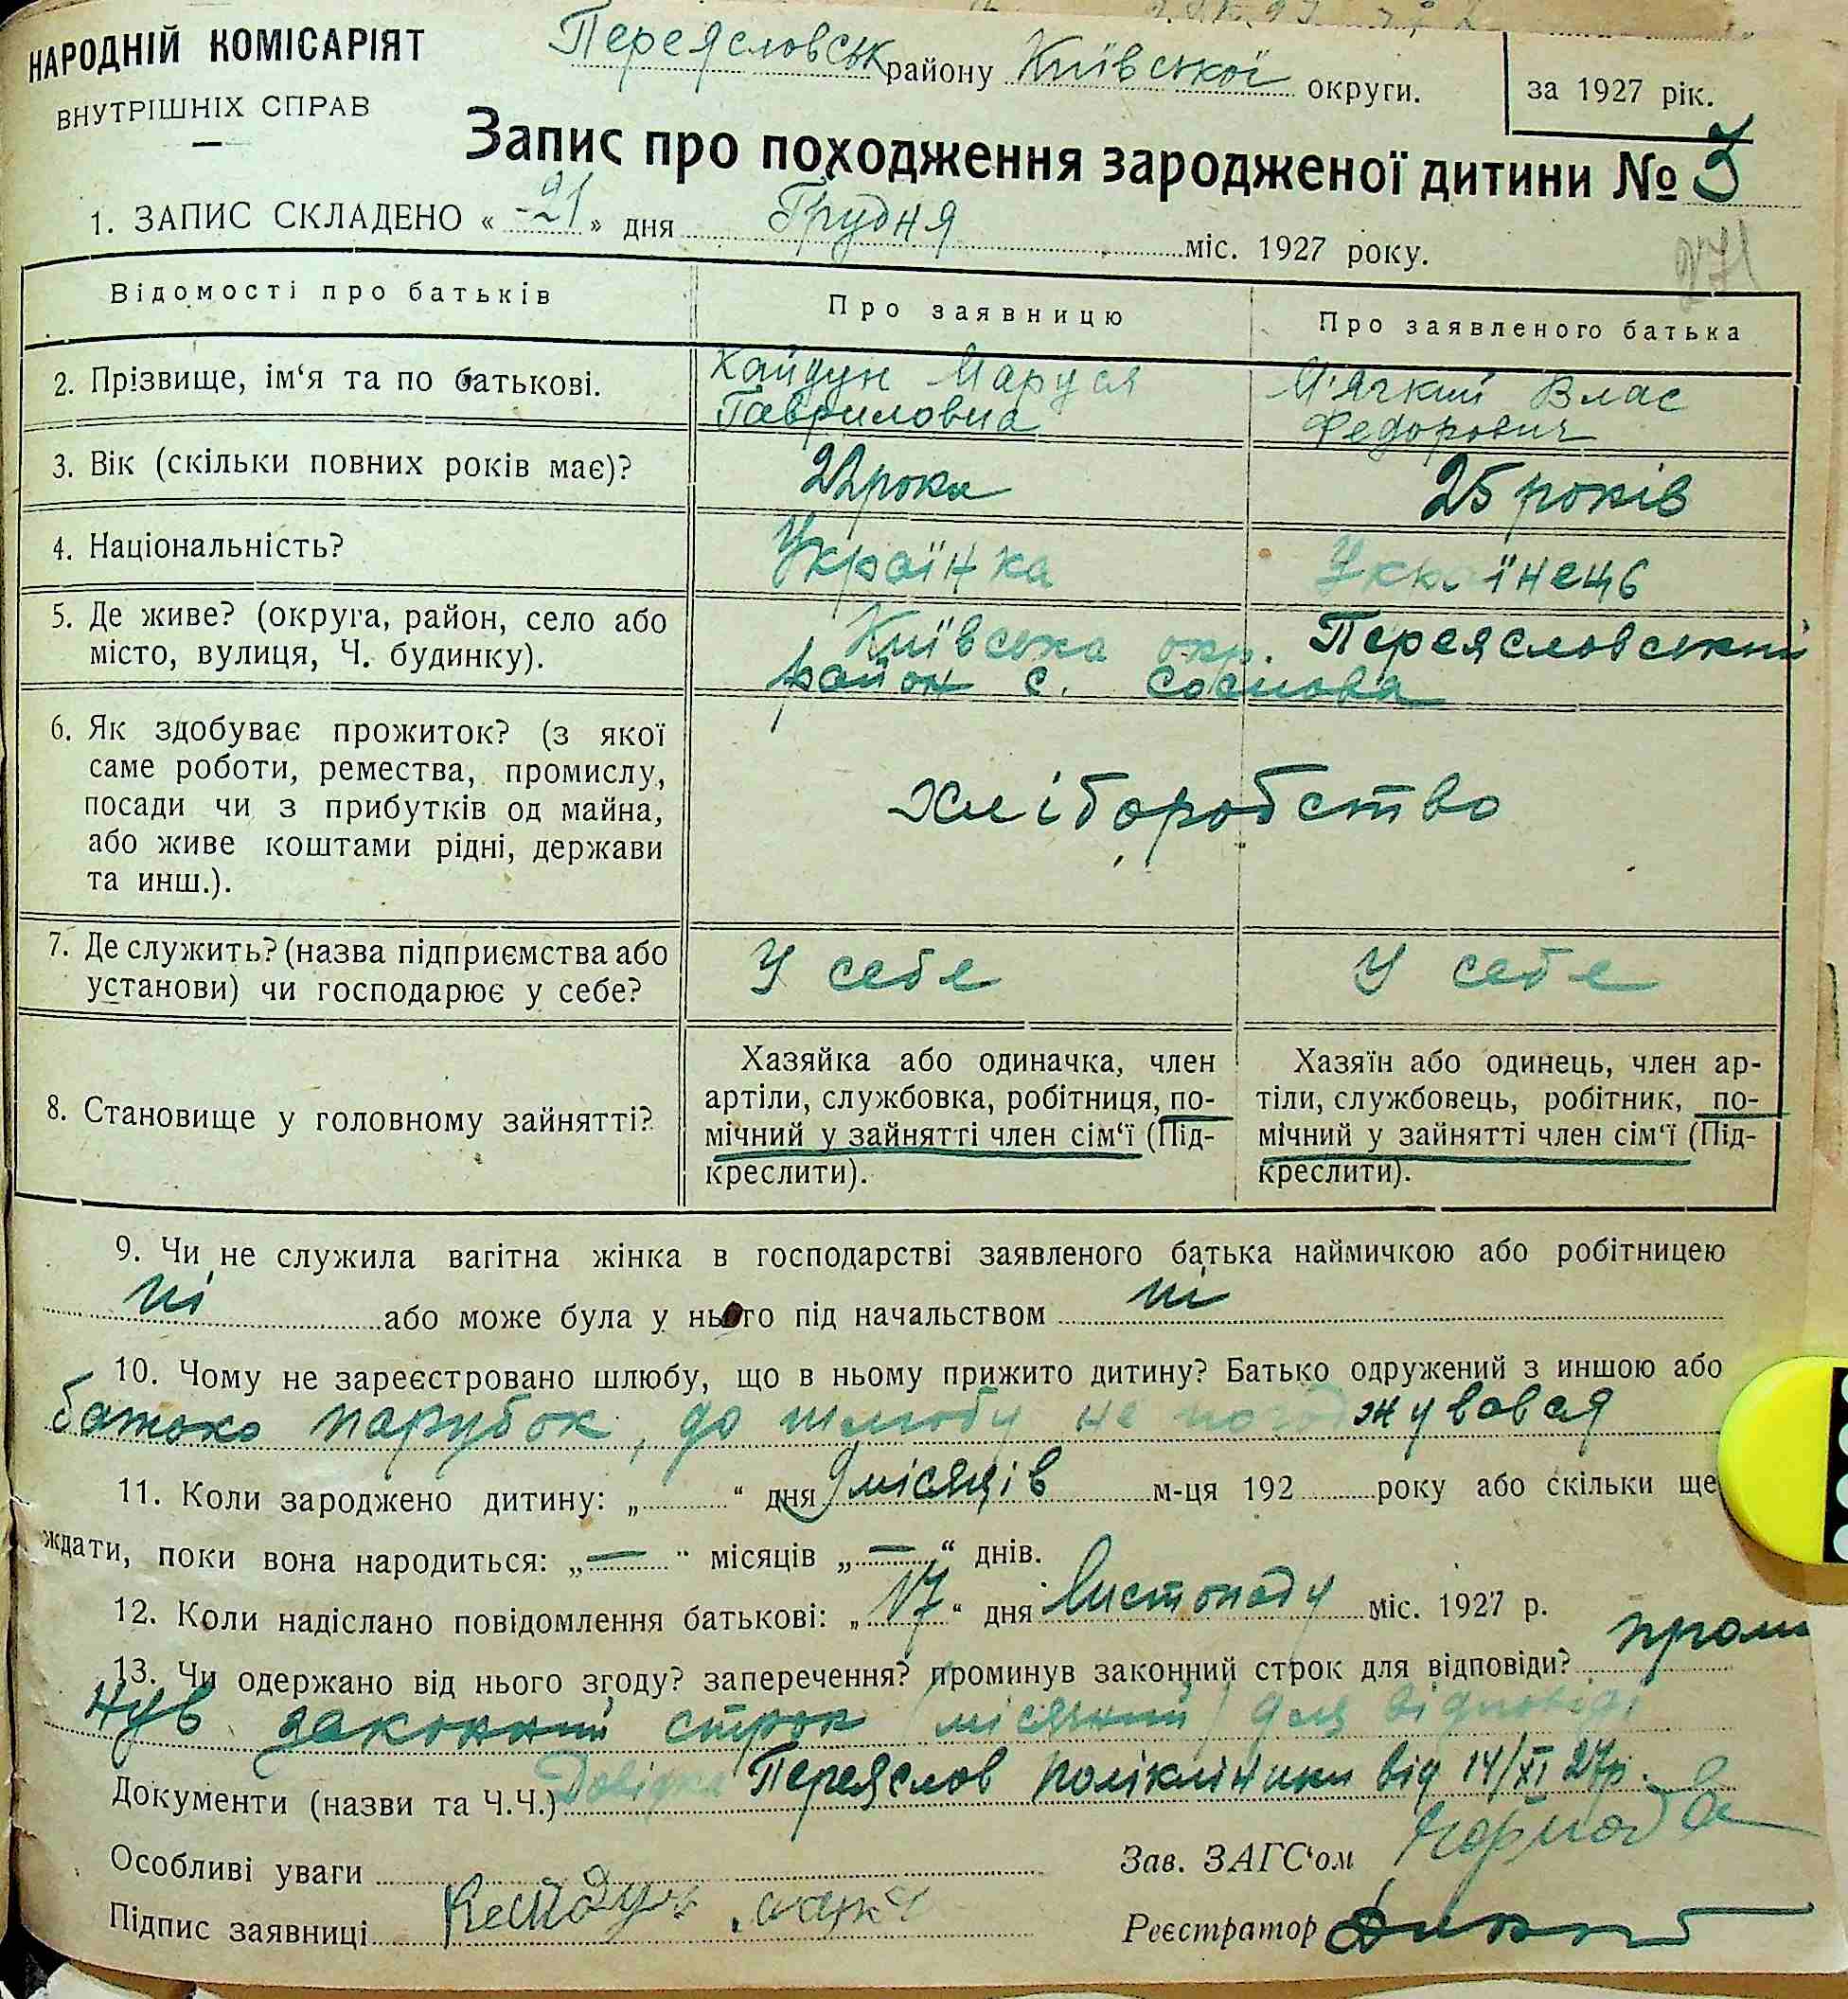 НАРОДНІЙ КОМІСАРІЯТ
ВНУТРІШНІХ СПРАВ
Переясловськ району Київської округи.
за 1927 рік.
Запис про походження зародженої дитини № 3
271
1. ЗАПИС СКЛАДЕНО « -21 » дня Грудня міс. 1927 року.
Відомості про батьків
Про заявницю
Про заявленого батька
2. Прізвище, ім‘я та по батькові.
Кайдун Маруся
Гавриловна
М'ягкий Влас
Федорович
3. Вік (скільки повних років має)?
22 роки
25 років
4. Національність?
Українка
Українець
5. Де живе? (округа, район, село або
місто, вулиця, Ч. будинку).
Київська окр. Переясловський
район с. Соснова
6. Як здобуває прожиток? (з якої
саме роботи, ремества, промислу,
посади чи з прибутків од майна,
або живе коштами рідні, держави
та инш.).
Хліборобство
7. Де служить? (назва підприємства або
установи) чи господарює у себе?
У себе
У себе
8. Становище у головному зайнятті?
Хазяйка або одиначка, член
артіли, службовка, робітниця, по-
мічний у зайнятті член сім‘ї (Під-
креслити).
Хазяїн або одинець, член ар-
тіли, службовець, робітник, по-
мічний у зайнятті член сім‘ї (Під-
креслити).
9. Чи не служила вагітна жінка в господарстві заявленого батька наймичкою або робітницею
ні або може була у нього під начальством ні
10. Чому не зареєстровано шлюбу, що в ньому прижито дитину? Батько одружений з иншою або
батько парубок, до шлюбу не погоджувався
11. Коли зароджено дитину: „ “ дня 9 місяців м-ця 192 року або скільки ще
ждати, поки вона народиться: „ — “ місяців „ — “ днів.
12. Коли надіслано повідомлення батькові: „ 17 “ дня Листопаду міс. 1927 р.
13. Чи одержано від нього згоду? заперечення? проминув законний строк для відповіди? проми
нув законний строк (місячний) для відповіді
Документи (назви та Ч.Ч.) Довідка Переяслов поліклініки від 14/XI 27р.
Особливі уваги
Зав. ЗАГС‘ом
Підпис заявниці Кайдун
Реєстратор